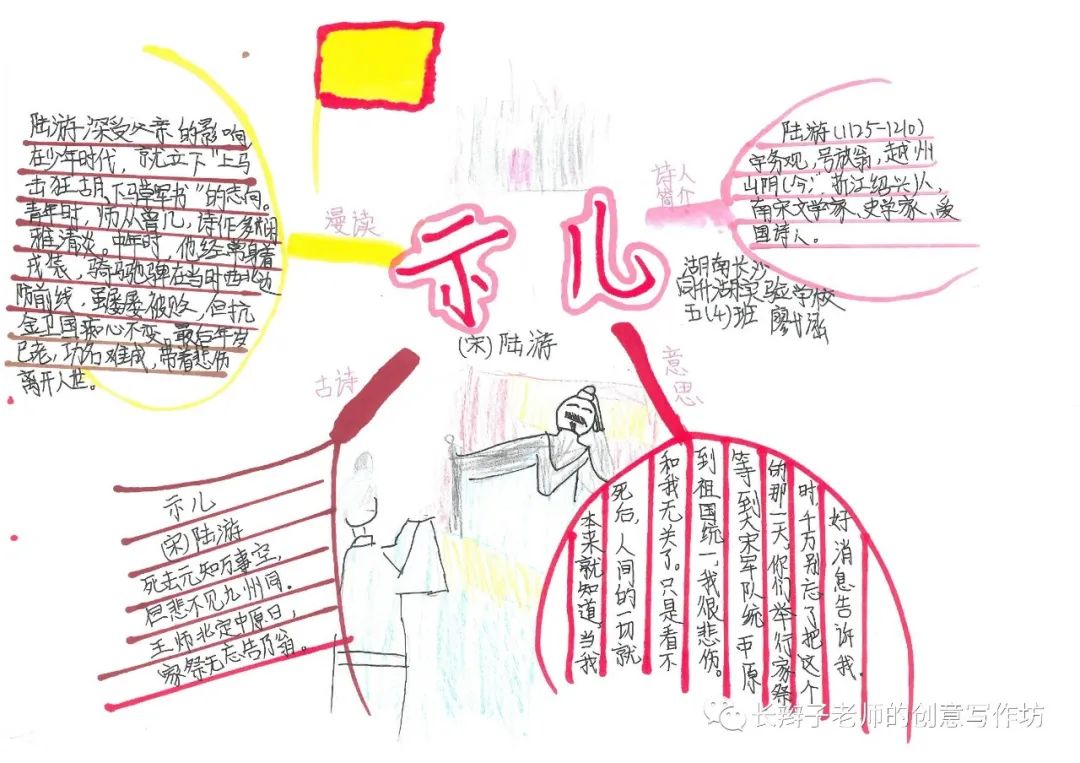 示儿
(宋)陆游
漫读
陆游深受父亲的影响,
在少年时代,就立下"上马
击狂胡,下马草军书"的志向。
青年时,师从曾几,诗作多闲
雅清淡。中年时,他经常身着
戎装,骑马驰骋在当时西北边
防前线,虽屡屡被败,但抗
金卫国痴心不变。最后年岁
已老,功名难成,带着悲伤
离开人世。
诗人
简介
陆游(1125-1210)
字务观,号放翁,越州
山阴(今浙江绍兴)人,
南宋文学家、史学家、爱
国诗人。
湖南长沙
同升湖实验学校
五(4)班 廖
古诗
示儿
(宋)陆游
死去元知万事空,
但悲不见九州同.
王师北定中原日,
家祭无忘告乃翁。
意思
本来就知道,当我
死后,人间的一切就
和我无关了。只是看不
到祖国统一,我很悲伤。
等到大宋军队统一中原
的那一天,你们举行家祭
时,千万别忘了把这个
好消息告诉我.
长辫子老师的创意写作坊